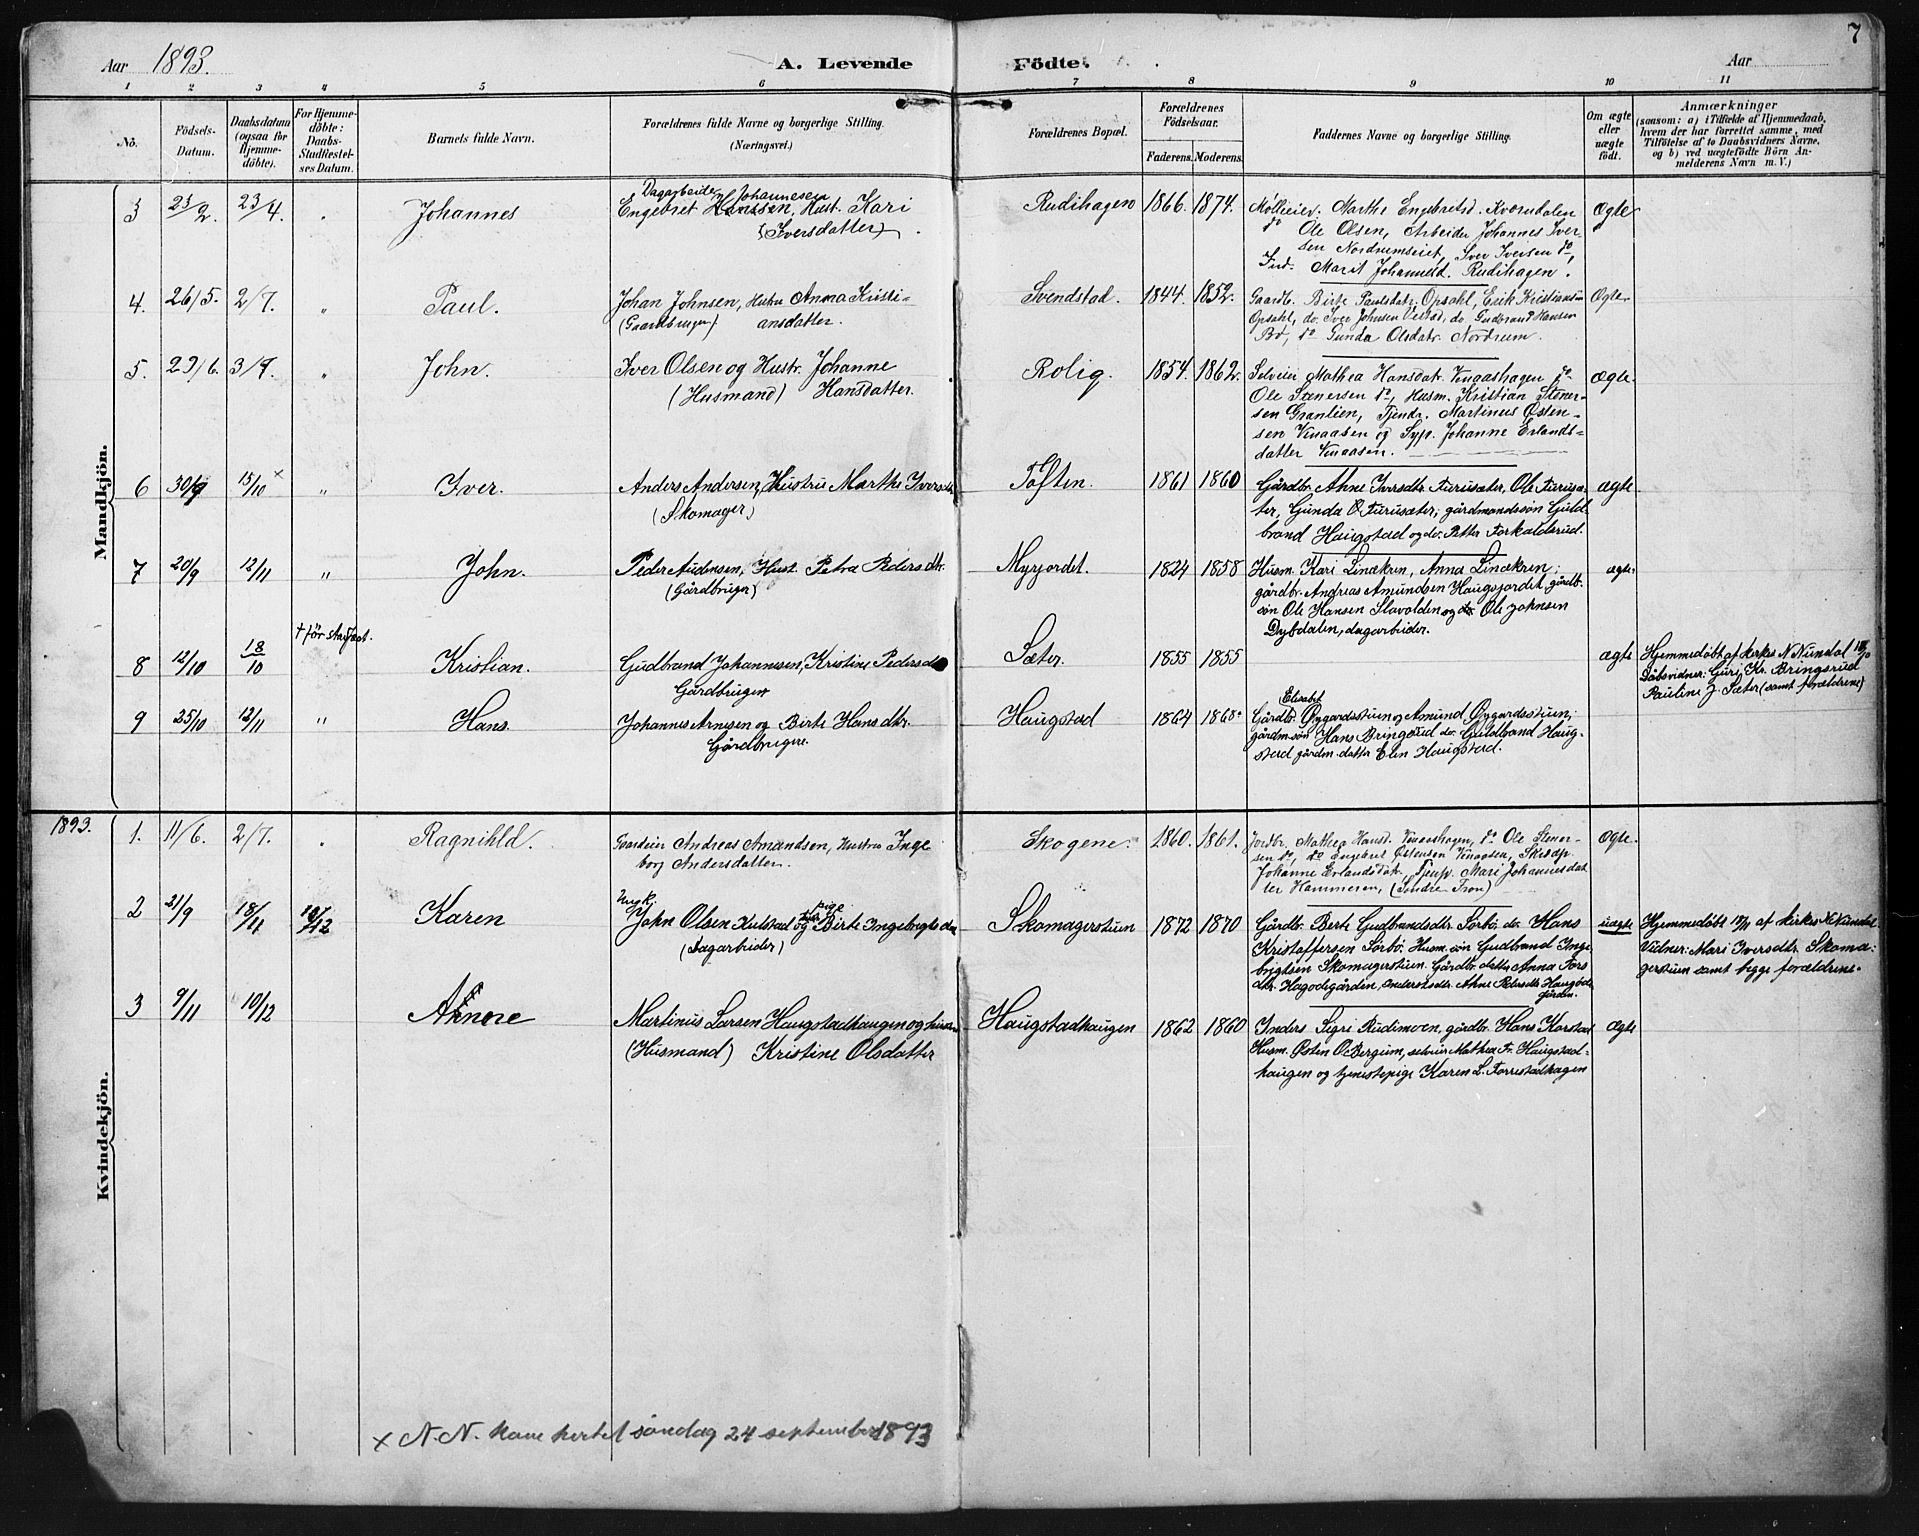 7
Aar 1893.
A. Levende Födte.
Aar
1 2 3 4 5 6 7 8 9 10 11
No.
Födsels-Datum.
Daabsdatum (ogsaa for Hjemme-döbte).
For Hjemme-döbte: Daabs-Stadfæstel-ses Datum.
Barnets fulde Navn.
Forældrenes fulde Navne og borgerlige Stilling.
(Næringsvei.)
Forældrenes Bopæl.
Forældrenes Födselsaar.
Faderens. Moderens.
Faddernes Navne og borgerlige Stilling.
Om ægte eller uægte födt.
Anmærkninger
(saasom: a) i Tilfælde af Hjemmedaab,
hvem der har forrettet samme, med
Tilföielse af to Daabsvidners Navne,
og b) ved uægtefödte Börn An-
melderens Navn m. V.)
Mandkjön.
3 23/2. 23/4. " Johannes
Dagarbeider Johannesen
Engebret Hansen, Hust. Kari
(Iversdatter)
Rudihagen 1866. 1874.
Mølleeier Marthe Engebretsd. Kværndalen
do Ole Olsen, Arbeider Johannes Iver-
sen Nordrumseiet, Iver Iversen do,
Ind. Marit Johannesd. Rudihagen.
Ægte
4. 26/5. 2/7. " Paul.
Johan Johnsen, Hustru Anna Kristi-
(Gaardbruger) ansdatter.
Svendstad. 1844. 1852.
Gaardb. Birte Paulsdatr. Opsahl, Erik Kristiansen
Opsahl, do. Iver Johnsen Velstad, do. Gudbrand Hansen
Bø, do Gunda Olsdatr. Nordrum.
Ægte
5. 29/6. 3/9. " John.
Iver Olsen og Hustr. Johanne
(Husmand) Hansdatter.
Rolig. 1854. 1862.
Selveier Mathea Hansdatr. Vinaashagen do
Ole Stenersen do, Husm. Kristian Stener-
sen Granlien, Tjendr. Martinus Østen-
sen Vinaasen og Syp. Johanne Erlands-
datter Vinaasen.
Ægte.
6 30/9 15/10 x " Iver.
Anders Andersen, Hustru Marthe Iversdtr
(Skomager)
Toften. 1861 1860
Gårdbr. Ahne Iversdtr. Furusæter, Ole Furusæ-
ter, Gunda O. Furusæter, gårdmandssøn Guld-
brand Haugstad og do. Petter Forkalsrud.
ægte.
7 20/9 12/11 " John.
Peder Audensen, Hust. Petra Pedersdtr.
(Gårdbruger)
Myrjordet. 1824 1858
Husm. Kari Linækren, Anna Linækren;
gårdbr. Andreas Amundsen Haugsjordet, gårdb-
søn Ole Hansen Slavolden og do. Ole Johnsen
Dybdalen, dagarbeider.
ægte.
8 12/10 18/10 † før stadfæst. Kristian.
Gudbrand Johannesen, Kristine Pedersd
Gårdbruger
Sæter. 1855 1855
ægte
Hjemmedøbt af kirkes. N. Nundal 18/10
Dåbsvidner: Guri Kr. Bringsrud
Pauline J. Sæter (samt forældrene)
9 25/10 12/11 " Hans.
Johannes Arnesen og Birte Hansdtr.
Gårdbrugere.
Haugstad 1864 1868.
Elisabet
Gårdbr. Øygardsstuen og Amund Øygardsstuen,
gårdm.søn Hans Bringsrud do. Guldbrand Haug-
stad gårdm.datter Elen Haugstad.
Kvindekjön.
1893. 1. 11/6. 2/7. " Ragnihld.
Gaardeier Andreas Amundsen, Hustru Inge
borg Andersdatter.
Skogene. 1860. 1861.
Jordbr. Mathea Hansd. Vinaashagen, do Ole Stener-
sen do, do Engebret Østensen Vinaasen, Skrædp.
Johanne Erlandsdatr., Tjenp. Mari Johannesdat
ter Hammeren, (Søndre Fron)
Ægte.
2 21/9 18/11 10/12 Karen
Ungk. pige
John Olsen Kulstad og Birte Ingebrigtsdtr
(Dagarbeider)
Skomagerstuen 1872 1870
Gårdbr. Berte Gudbrandsdtr. Sörbö do. Hans
Kristoffersen Sörbö. Husm.søn Gudbrand Inge
brigtsen Skomagerstuen. Gårdbr. datter Anna Tors
dtr. Hagodegården, Ahne Pedersdtr Haugøde
gården.
uægte
Hjemmedöbt 18/11 af kirkes. N. Nundal
Vidner: Mari Iversdtr. Skoma-
gerstuen samt begge forældrene.
3 9/11 10/12 Ahnne
Martinus Larsen Haugstadhaugen og hustru
(Husmand) Kristine Olsdatter
Haugstadhaugen 1862 1860
Inders Sigri Rudimoen, gårdbr. Hans Korstad
Husm. Østen O. Bergum, selveier Mathea Fr. Haugstad-
haugen og tjenestepige Karen L. Forrestadhagen
Ægte
x N.N. kom hertil søndag 24 september 1893